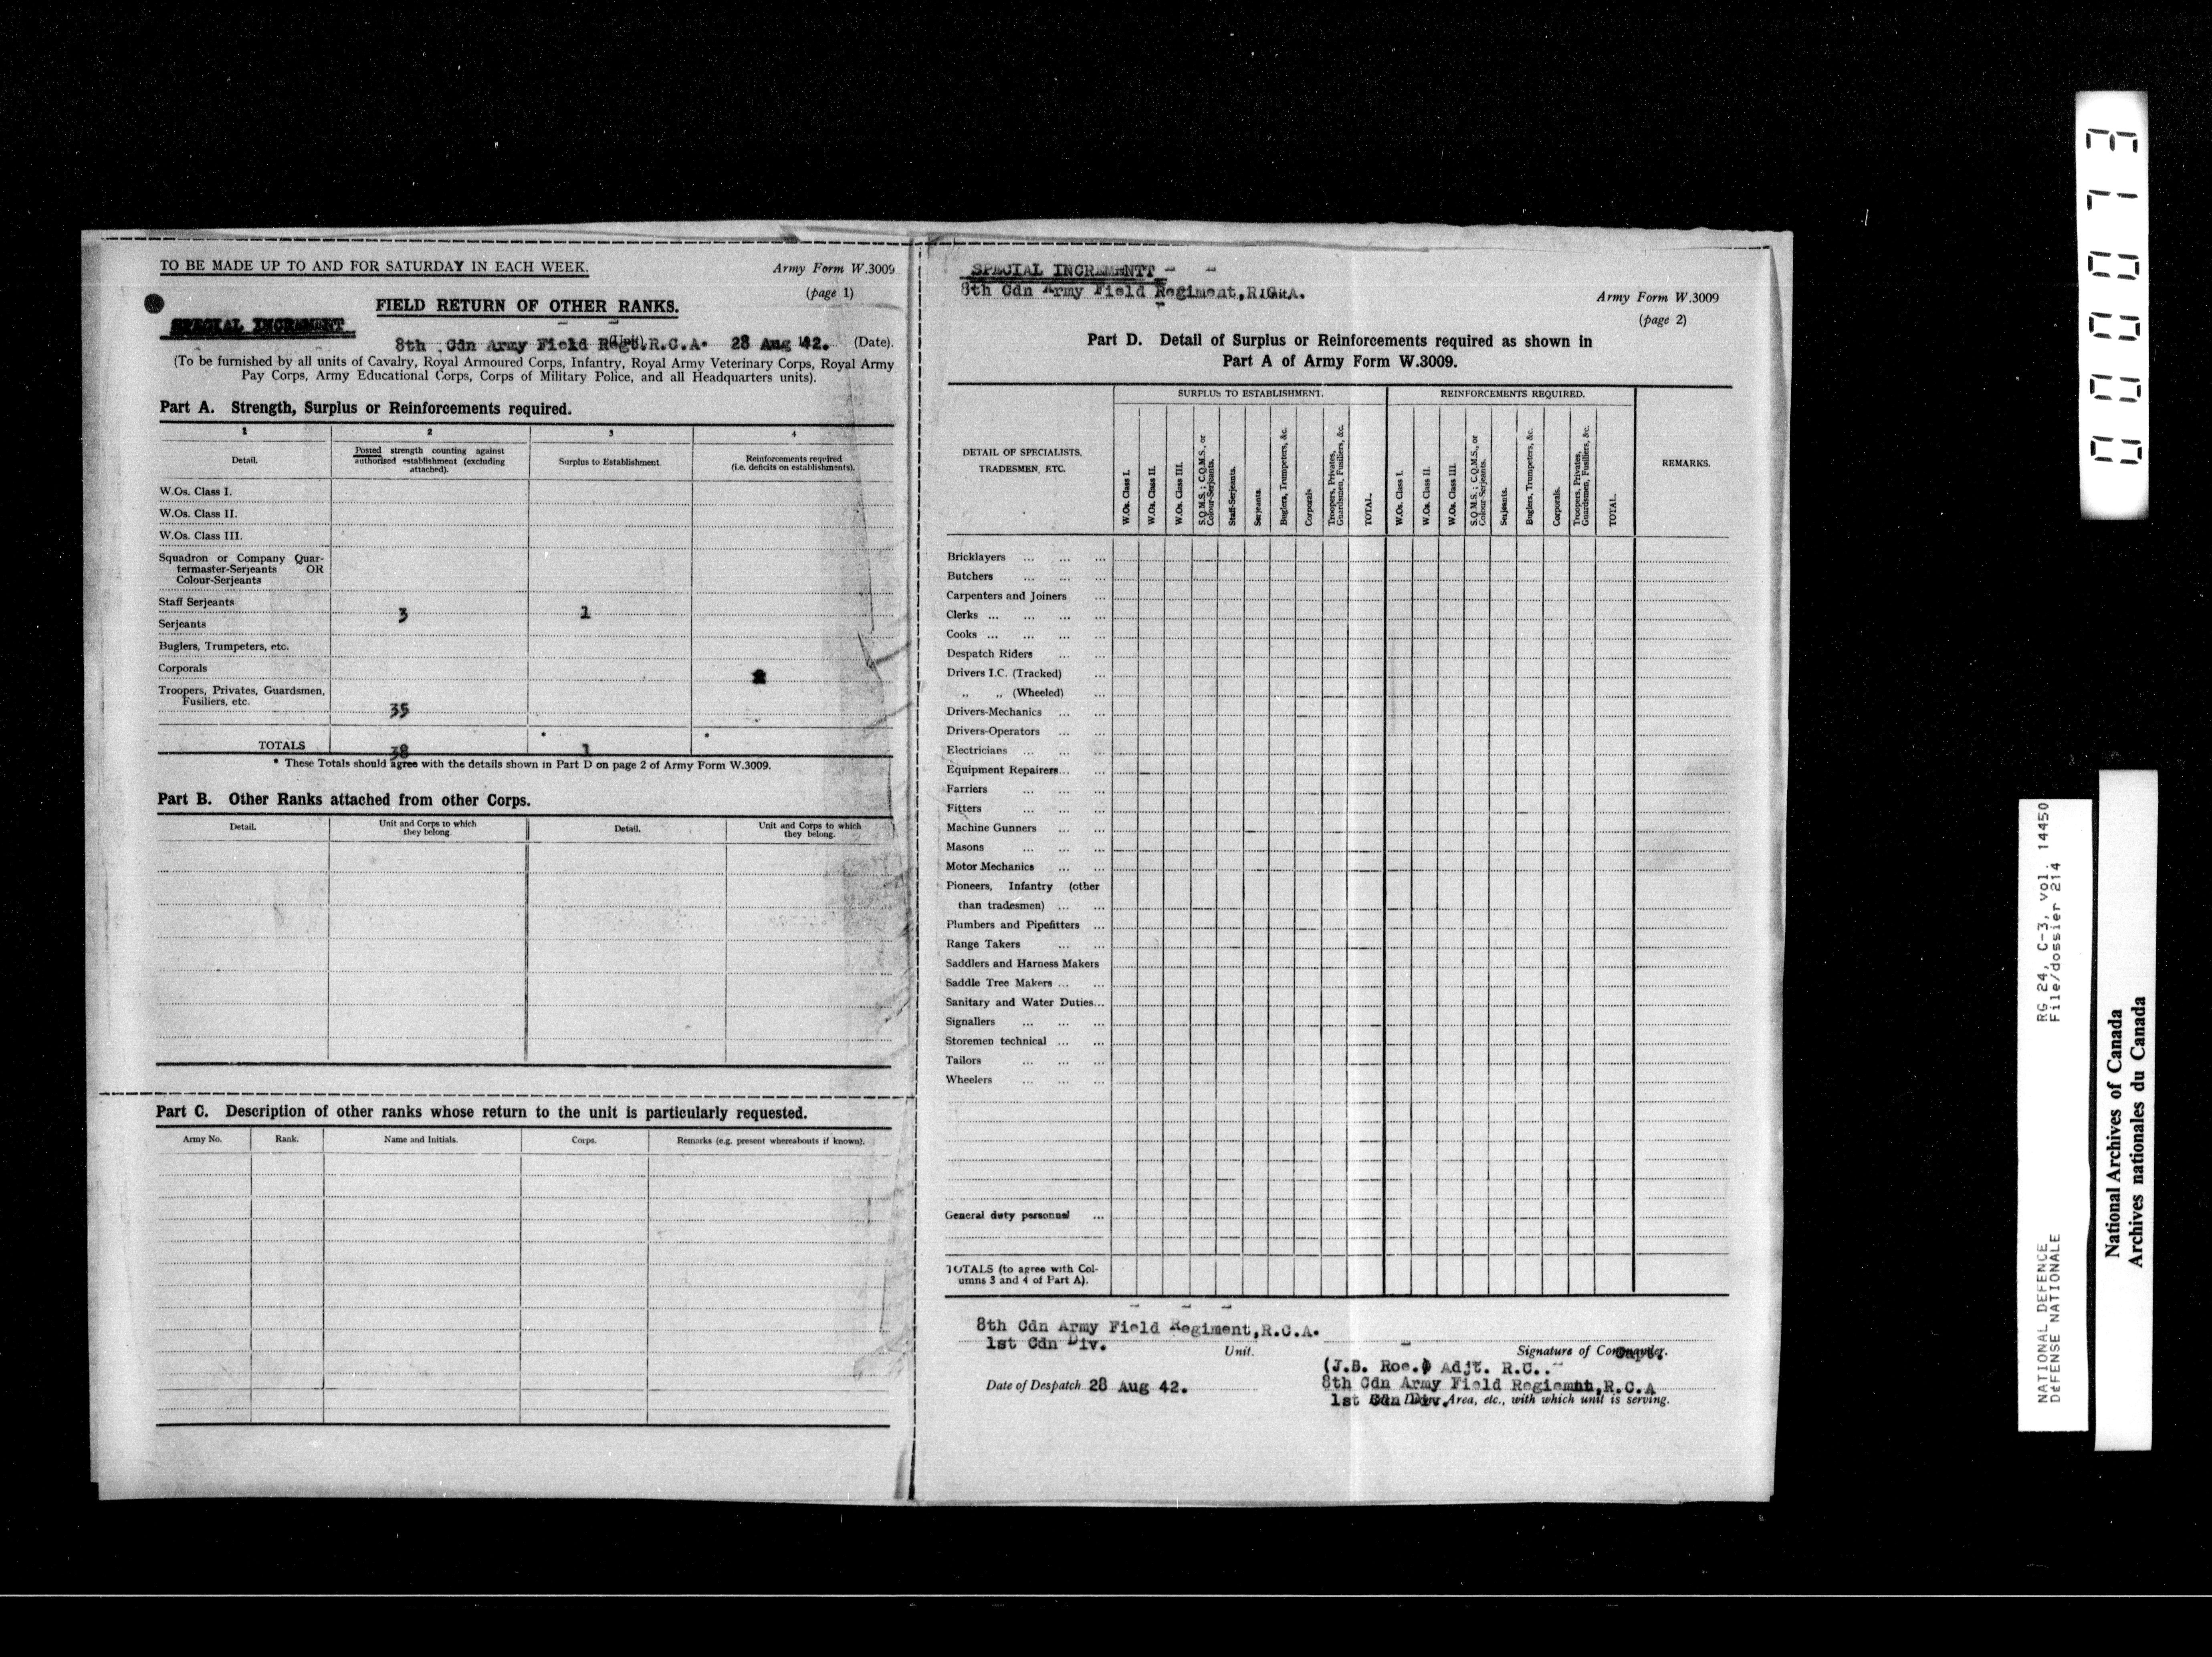 TO BE MADE UP TO AND FOR SATURDAY IN EACH WEEK.
Army Form W.3009
(page 1)
FIELD RETURN OF OTHER RANKS.
SPECIAL INCREMENT
8th Cdn Army Field Regt. R.C.A. 28 Aug 42. (Date).
(To be furnished by all units of Cavalry, Royal Armoured Corps, Infantry, Royal Army Veterinary Corps, Royal Army
Pay Corps, Army Educational Corps, Corps of Military Police, and all Headquarters units).
Part A. Strength, Surplus or Reinforcements required.
1 2 3 4
Detail.
Posted strength counting against
authorised establishment (excluding
attached).
Surplus to Establishment
Reinforcements required
(i.e. deficits on establishments).
W.Os. Class I.
W.Os. Class II.
W.Os. Class III.
Squadron or Company Quar-
termaster-Serjeants OR
Colour-Serjeants
Staff Serjeants
3 1
Serjeants
Buglers, Trumpeters, etc.
Corporals
Troopers, Privates, Guardsmen,
Fusiliers, etc.
35
TOTALS 38 * 1 *
* These Totals should agree with the details shown in Part D on page 2 of Army Form W.3009.
Part B. Other Ranks attached from other Corps.
Detail.
Unit and Corps to which
they belong.
Detail.
Unit and Corps to which
they belong.
Part C. Description of other ranks whose return to the unit is particularly requested.
Army No. Rank. Name and Initials. Corps. Remarks (e.g. present whereabouts if known).
SPECIAL INCREMENTT
8th Cdn Army Field Regiment,R.C.A.
Army Form W.3009
(page 2)
Part D. Detail of Surplus or Reinforcements required as shown in
Part A of Army Form W.3009.
DETAIL OF SPECIALISTS,
TRADESMEN, ETC.
SURPLUS TO ESTABLISHMENT.
W.Os. Class I.
W.Os. Class II.
W.Os. Class III.
S.Q.M.S.; C.Q.M.S., or
Colour-Serjeants.
Staff-Serjeants.
Serjeants.
Buglers, Trumpeters, &c.
Corporals
Troopers, Privates,
Guardsmen, Fusiliers, &c.
TOTAL.
REINFORCEMENTS REQUIRED.
W.Os. Class I.
W.Os. Class II.
W.Os. Class III.
S.Q.M.S.; C.Q.M.S., or
Colour-Serjeants.
Serjeants.
Buglers, Trumpeters, &c.
Corporals.
Troopers, Privates,
Guardsmen, Fusiliers, &c.
TOTAL.
REMARKS.
Bricklayers ... ... ...
Butchers ... ... ...
Carpenters and Joiners ...
Clerks ... ... ... ...
Cooks ... ... ... ...
Despatch Riders ... ...
Drivers I.C. (Tracked) ...
„ „ (Wheeled) ...
Drivers-Mechanics ... ...
Drivers-Operators ... ...
Electricians ... ... ...
Equipment Repairers... ...
Farriers ... ... ...
Fitters ... ... ...
Machine Gunners ... ...
Masons ... ... ...
Motor Mechanics ... ...
Pioneers, Infantry (other
than tradesmen) ... ...
Plumbers and Pipefitters ...
Range Takers ... ...
Saddlers and Harness Makers
Saddle Tree Makers ... ...
Sanitary and Water Duties...
Signallers ... ... ...
Storemen technical ... ...
Tailors ... ... ...
Wheelers ... ... ...
General duty personnel ...
TOTALS (to agree with Col-
umns 3 and 4 of Part A).
8th Cdn Army Field Regiment,R.C.A.
1st Cdn Div.
Unit.
Signature of Commander.
(J.B. Roe.) Adjt. R.C..
Date of Despatch 28 Aug 42.
8th Cdn Army Field Regiemnn,R.C.A
1st Cdn Div. Area, etc., with which unit is serving.
000073
NATIONAL DEFENCE RG 24, C-3, vol. 14450
DÉFENSE NATIONALE File/dossier 214
National Archives of Canada
Archives nationales du Canada